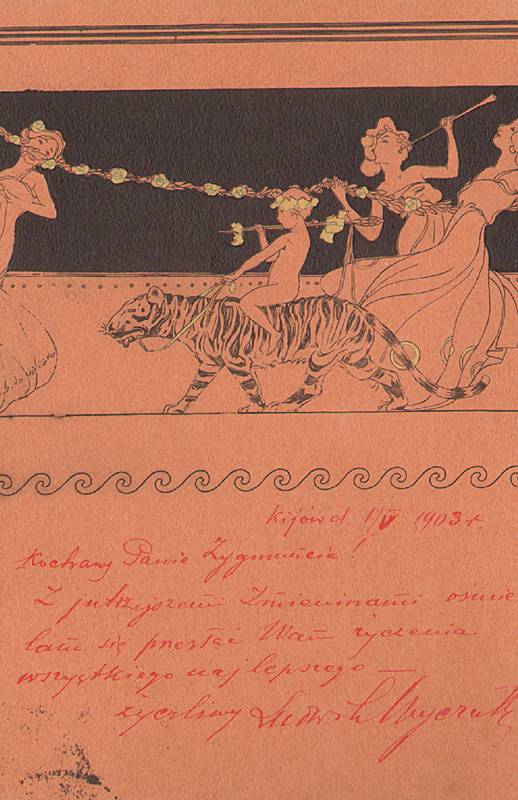 Kijów d. 1/V 1903 r.
Kochany Panie Zygmuncie!
Z jutrzejszemi Imieninami ośmie
lam się przesłać Wam życzenia
wszystkiego najlepszego —
życzliwy Ludwik